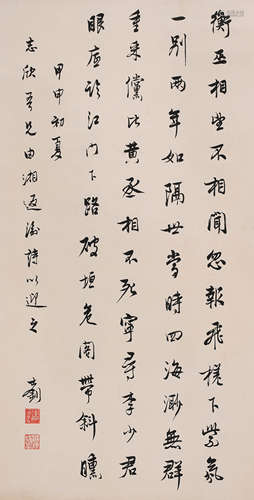 衡巫相望不相聞忽報飛槎下紫氛
一別兩年如隔世當時四海渺無群
重來儻比黃丞相不死寧尋李少君
眼底江門下路破垣危閣帶斜曛
甲申初夏
志欣吾兄由湘返渝詩以迎之